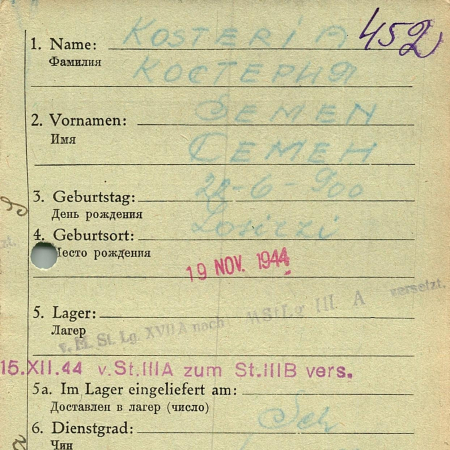 KOSTERIA 452
1. Name:
Фамилия
КОСТЕРИЯ
SEMEN
2. Vornamen:
Имя
СЕМЕН
3. Geburtstag: 28-6-900
День рождения
4. Geburtsort:
Место рождения
19 NOV. 1944
5. Lager:
Лагер
v. M. St. Lg. XVII A nach MStLg III. A gersetzt.
15.XII.44 v.St.IIIA zum St.IIIB vers.
5a. Im Lager eingeliefert am:
Доставлен в лагер (число)
6. Dienstgrad:
Чин